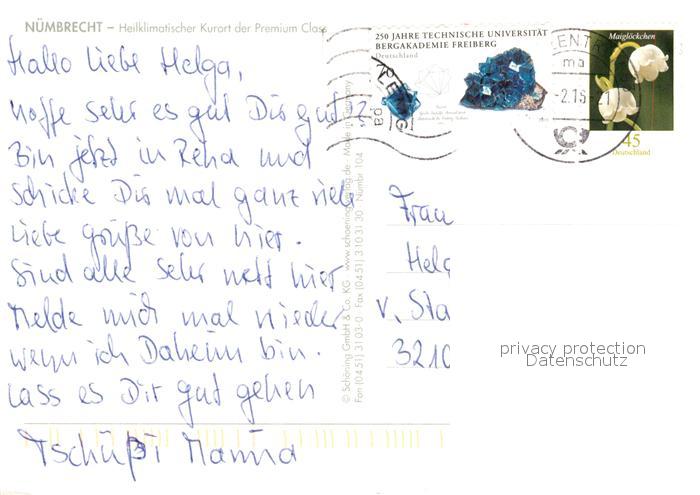 NÜMBRECHT – Heilklimatischer Kurort der Premium Class
Hallo liebe Helga,
hoffe sehr es gut Dir gut?
Bin jetzt in Reha und
schicke Dir mal ganz viele
liebe Grüße von hier.
Sind alle sehr nett hier
Melde mich mal wieder
wenn ich Daheim bin.
Lass es Dir gut gehen
Tschüßi Manna
© Schöning GmbH & Co. KG · www.schoening-verlag.de · Made in Germany
Fon (04 51) 31 03-0 · Fax (04 51) 3 10 31 30 · Nümbr 104
250 JAHRE TECHNISCHE UNIVERSITÄT
BERGAKADEMIE FREIBERG
Deutschland
Maiglöckchen
45
Deutschland
BRIEFZENTRUM
ma
-2.15-
1
Frau
Helg
v. Sta
3210
privacy protection
Datenschutz